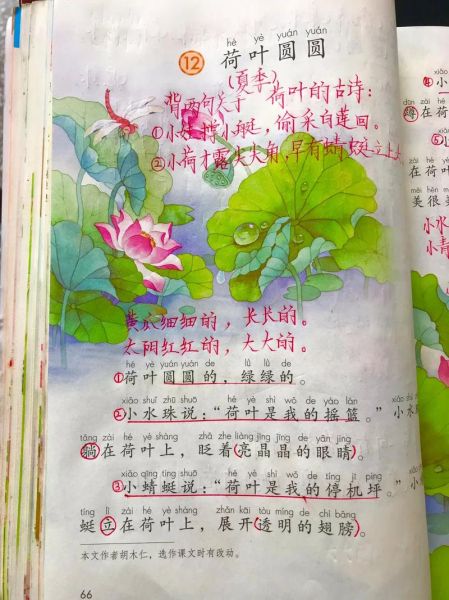 hé yè yuán yuán
12 荷叶圆圆
(夏季)
背两句关于 荷叶的古诗：
①小娃撑小艇，偷采白莲回。
②小荷才露尖尖角，早有蜻蜓立上头
黄瓜细细的，长长的。
太阳红红的，大大的。
hé yè yuán yuán de lǜ lǜ de
①荷叶圆圆的，绿绿的。
xiǎo shuǐ zhū shuō hé yè shì wǒ de yáo lán
②小水珠说：“荷叶是我的摇篮。”小水
tǎng zài hé yè shàng zhǎ zhe liàng jīng jīng de yǎn jing
躺在荷叶上，眨着(亮晶晶的眼睛)。
xiǎo qīng tíng shuō hé yè shì wǒ de tíng jī píng
③小蜻蜓说：“荷叶是我的停机坪。”小
tíng lì zài hé yè shàng zhǎn kāi tòu míng de chì bǎng
蜓立在荷叶上，展开(透明的翅膀)。
本文作者胡木仁，选作课文时有改动。
66
xiǎo
④小
dūn zài hé
蹲在荷
xiǎo
⑤小
zài hé yè
在荷叶
měi hěn m
美很美
小水
小青